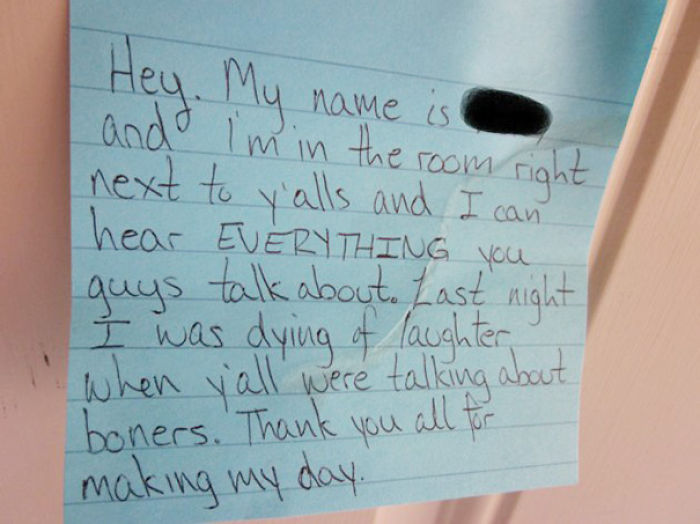 Hey. My name is
and I'm in the room right
next to y'alls and I can
hear EVERYTHING you
guys talk about. Last night
I was dying of laughter
when y'all were talking about
boners. Thank you all for
making my day.